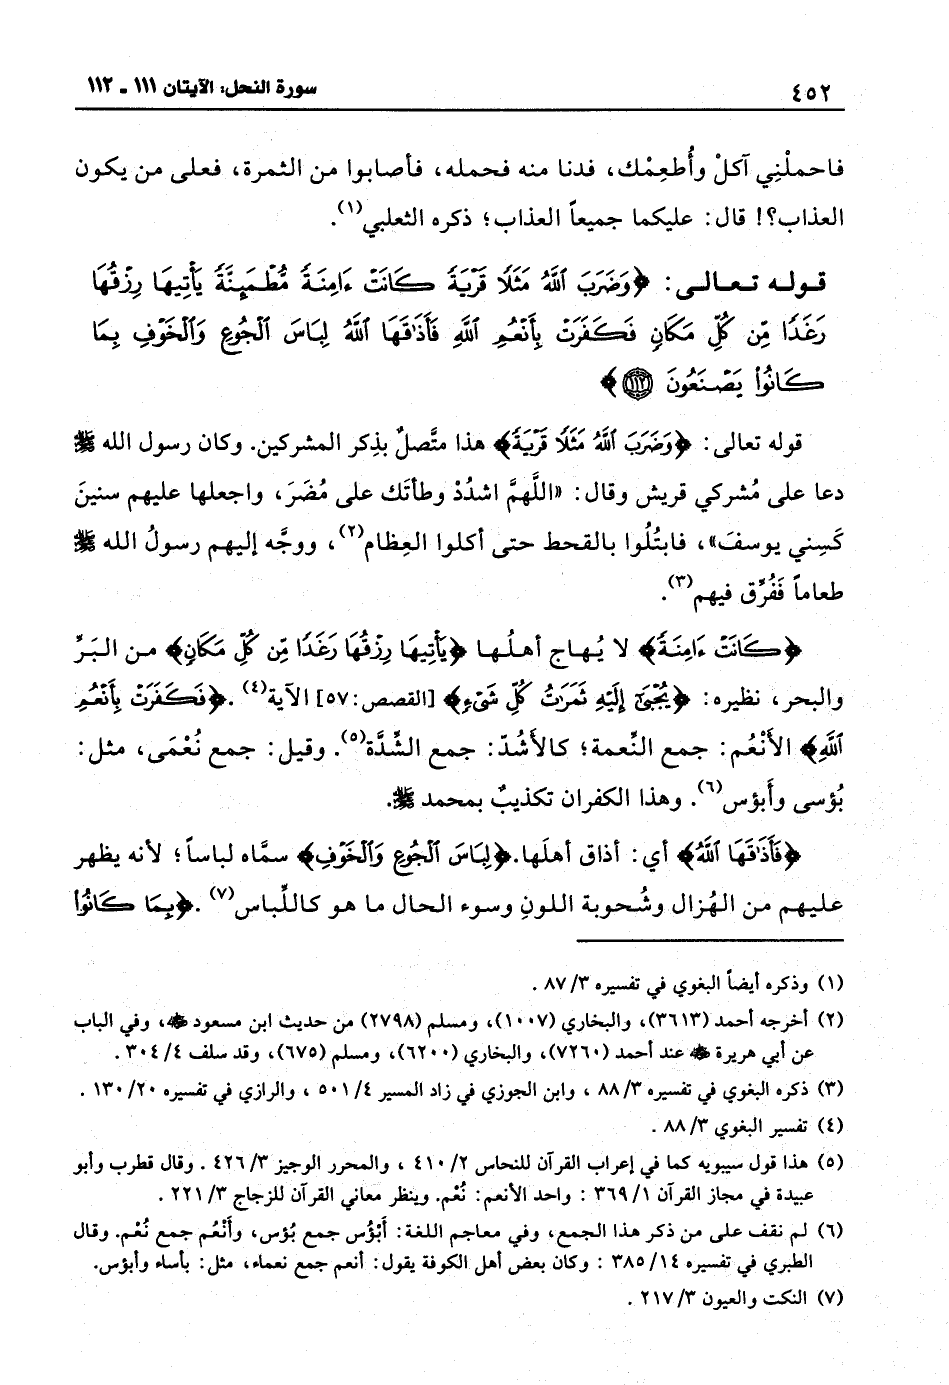 ٤٥٢
سورة النحل: الآيتان ١١١ ـ ١١٢
فاحملْنِي آكلْ وأُطعِمْك، فدنا منه فحمله، فأصابوا من الثمرة، فعلى من يكون
العذاب؟! قال: عليكما جميعاً العذاب؛ ذكره الثعلبي(١).
قوله تعالى: ﴿وَضَرَبَ ٱللَّهُ مَثَلًا قَرْيَةً كَانَتْ ءَامِنَةً مُّطْمَئِنَّةً يَأْتِيهَا رِزْقُهَا
رَغَدًا مِّن كُلِّ مَكَانٍ فَكَفَرَتْ بِأَنْعُمِ ٱللَّهِ فَأَذَٰقَهَا ٱللَّهُ لِبَاسَ ٱلْجُوعِ وَٱلْخَوْفِ بِمَا
كَانُوا۟ يَصْنَعُونَ ١١٢﴾
قوله تعالى: ﴿وَضَرَبَ ٱللَّهُ مَثَلًا قَرْيَةً﴾ هذا متَّصلٌ بذِكر المشركين. وكان رسول الله ﷺ
دعا على مُشركي قريش وقال: «اللَّهمَّ اشدُدْ وطأتَك على مُضَرَ، واجعلها عليهم سنينَ
كَسِني يوسفَ»، فابتُلُوا بالقحط حتى أكلوا العِظام(٢)، ووجَّه إليهم رسولُ الله ﷺ
طعاماً ففُرِّق فيهم(٣).
﴿كَانَتْ ءَامِنَةً﴾ لا يُهاج أهلُها ﴿يَأْتِيهَا رِزْقُهَا رَغَدًا مِّن كُلِّ مَكَانٍ﴾ من البَرِّ
والبحر، نظيره: ﴿يُجْبَىٰٓ إِلَيْهِ ثَمَرَٰتُ كُلِّ شَىْءٍ﴾ [القصص:٥٧] الآية(٤). ﴿فَكَفَرَتْ بِأَنْعُمِ
ٱللَّهِ﴾ الأَنْعُم: جمع النِّعمة؛ كالأَشُدّ: جمع الشِّدَّة(٥). وقيل: جمع نُعْمَى، مثل:
بُؤسى وأَبؤس(٦). وهذا الكفران تكذيبٌ بمحمد ﷺ.
﴿فَأَذَٰقَهَا ٱللَّهُ﴾ أي: أذاق أهلَها. ﴿لِبَاسَ ٱلْجُوعِ وَٱلْخَوْفِ﴾ سمَّاه لباساً؛ لأنه يظهر
عليهم من الهُزال وشُحوبة اللونِ وسوء الحال ما هو كاللِّباس(٧). ﴿بِمَا كَانُوا۟
(١) وذكره أيضاً البغوي في تفسيره ٨٧/٣ .
(٢) أخرجه أحمد (٣٦١٣)، والبخاري (١٠٠٧)، ومسلم (٢٧٩٨) من حديث ابن مسعود ﷺ، وفي الباب
عن أبي هريرة ﷺ عند أحمد (٧٢٦٠)، والبخاري (٦٢٠٠)، ومسلم (٦٧٥)، وقد سلف ٣٠٤/٤ .
(٣) ذكره البغوي في تفسيره ٨٨/٣ ، وابن الجوزي في زاد المسير ٥٠١/٤ ، والرازي في تفسيره ١٣٠/٢٠ .
(٤) تفسير البغوي ٨٨/٣ .
(٥) هذا قول سيبويه كما في إعراب القرآن للنحاس ٤١٠/٢ ، والمحرر الوجيز ٤٢٦/٣ . وقال قطرب وأبو
عبيدة في مجاز القرآن ٣٦٩/١ : واحد الأنعم: نُعْم. وينظر معاني القرآن للزجاج ٢٢١/٣ .
(٦) لم نقف على من ذكر هذا الجمع، وفي معاجم اللغة: أَبْؤُس جمع بُؤس، وأَنْعُم جمع نُعْم. وقال
الطبري في تفسيره ٣٨٥/١٤ : وكان بعض أهل الكوفة يقول: أنعم جمع نعماء، مثل: بأساء وأبؤس.
(٧) النكت والعيون ٢١٧/٣ .